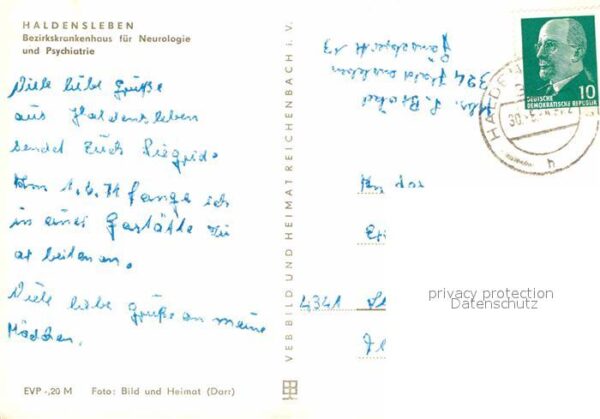 HALDENSLEBEN
Bezirkskrankenhaus für Neurologie
und Psychiatrie
Viele liebe Grüße
aus Haldensleben
sendet Euch Siegrid.
Am 1.6.71 fange ich
in einer Gastätte zu
arbeiten an.
Viele liebe Grüße an meine
Mädchen.
EVP -,20 M Foto: Bild und Heimat (Darr)
VEB BILD UND HEIMAT REICHENBACH i. V.
Abs. S.
324 Haldensleben
13
10
DEUTSCHE
DEMOKRATISCHE REPUBLIK
30.
h
4341
privacy protection
Datenschutz